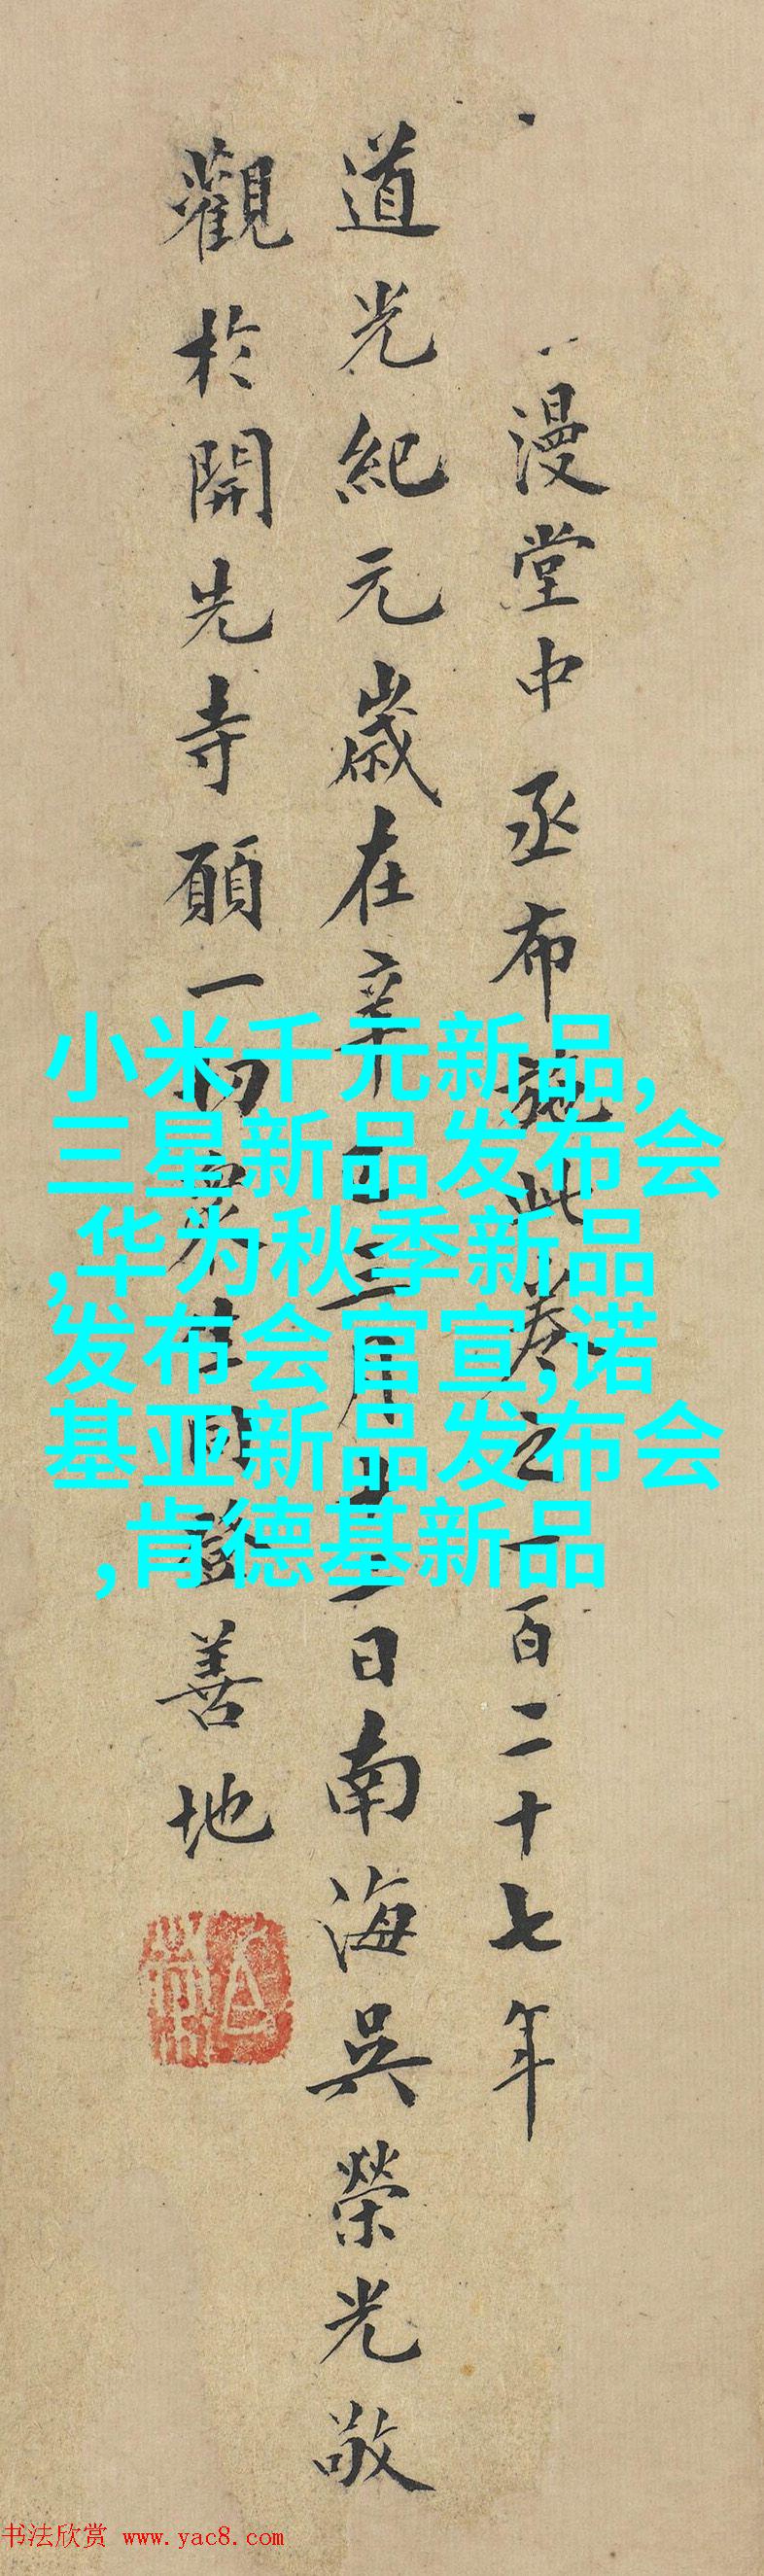 漫堂中丞布施此卷之一百二十七年
道光紀元歲在辛巳三月日南海吳榮光敬
觀於開先寺願一切眾同證善地
小米千元新品,
三星新品发布会
,华为秋季新品
发布会官宣,诺
基亚新品发布会
,肯德基新品
书法欣赏 www.yac8.com